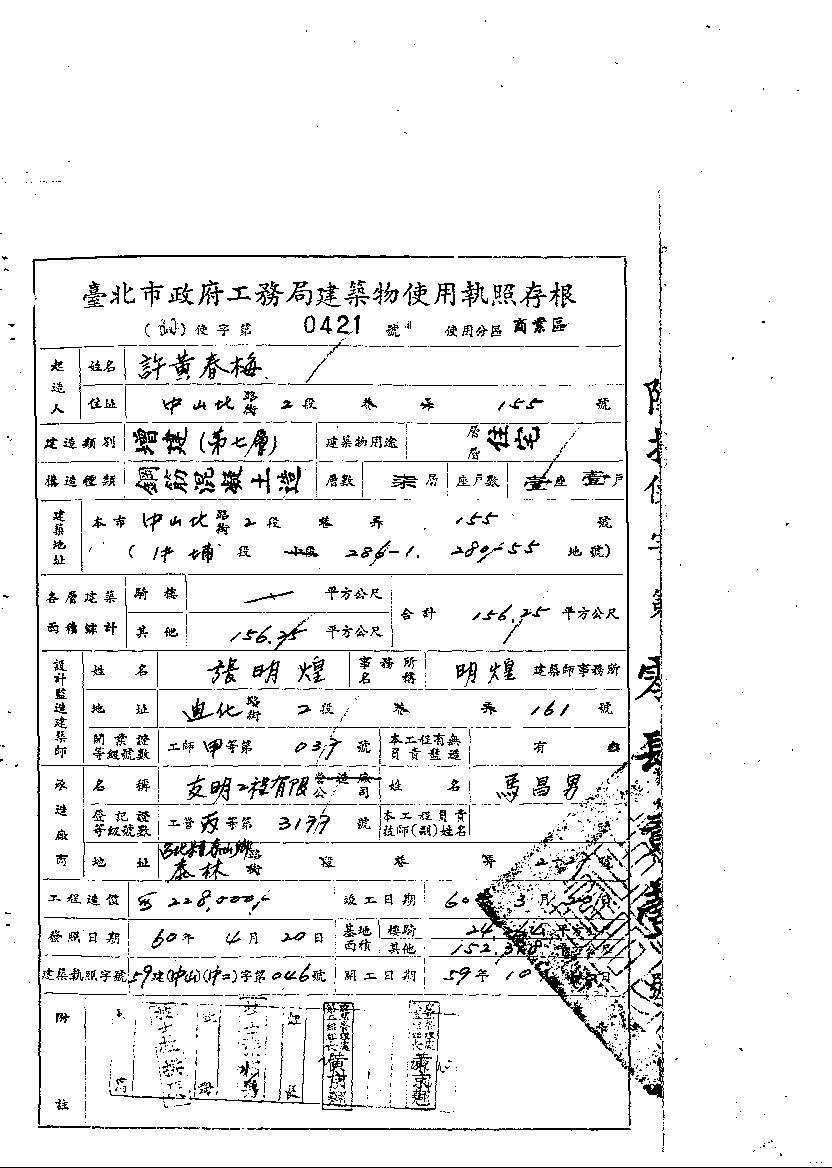 臺北市政府工務局建築物使用執照存根
使字第 0421 號 使用分區 商業區
起造人 姓名 許黃春梅
住址 中山北路街 2段 巷 弄 155 號
建造類別 增建(第七層) 建築物用途 層層 住宅
構造種類 鋼筋混凝土造 層數 柒層 座戶數 壹座 壹戶
建築地址 本市 中山北路街 2段 巷 弄 155 號
( 中埔 段 小段 286-1. 280-55 地號)
各層建築面積綜計 騎樓 — 平方公尺 合計 156.25 平方公尺
其他 156.25 平方公尺
設計監造建築師 姓名 張明煌 事務所名稱 明煌 建築師事務所
地址 迪化路街 2段 巷 弄 161 號
開業證等級號數 工師甲等第 037 號 本工程有無負責監造 有
承造廠商 名稱 友明工程有限營造廠公司 姓名 馬昌男
登記證等級號數 工營丙等第 3177 號 本工程負責技師(副)姓名
地址 泰林路街 段 巷 弄 號
工程造價 228,000 竣工日期 60年 3月 20日
發照日期 60年 4月 20日 基地面積 樓騎 平方公尺
其他 152. 平方公尺
建築執照字號 59建(中山)(中二)字第046號 開工日期 59年 10月 日
附註